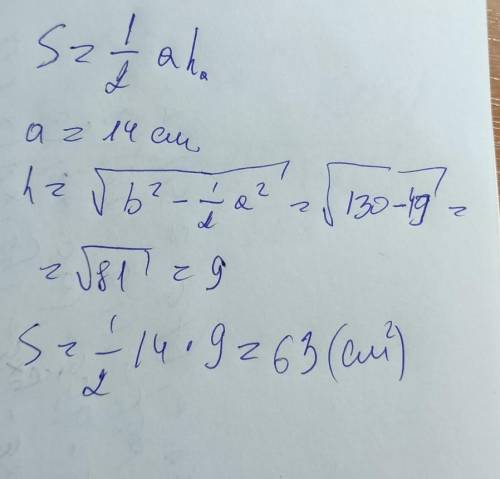 S = 1/2 a hₐ
a = 14 см
h = √(b² - 1/2 a²) = √(130 - 49) =
= √81 = 9
S = 1/2 14 · 9 = 63 (см²)